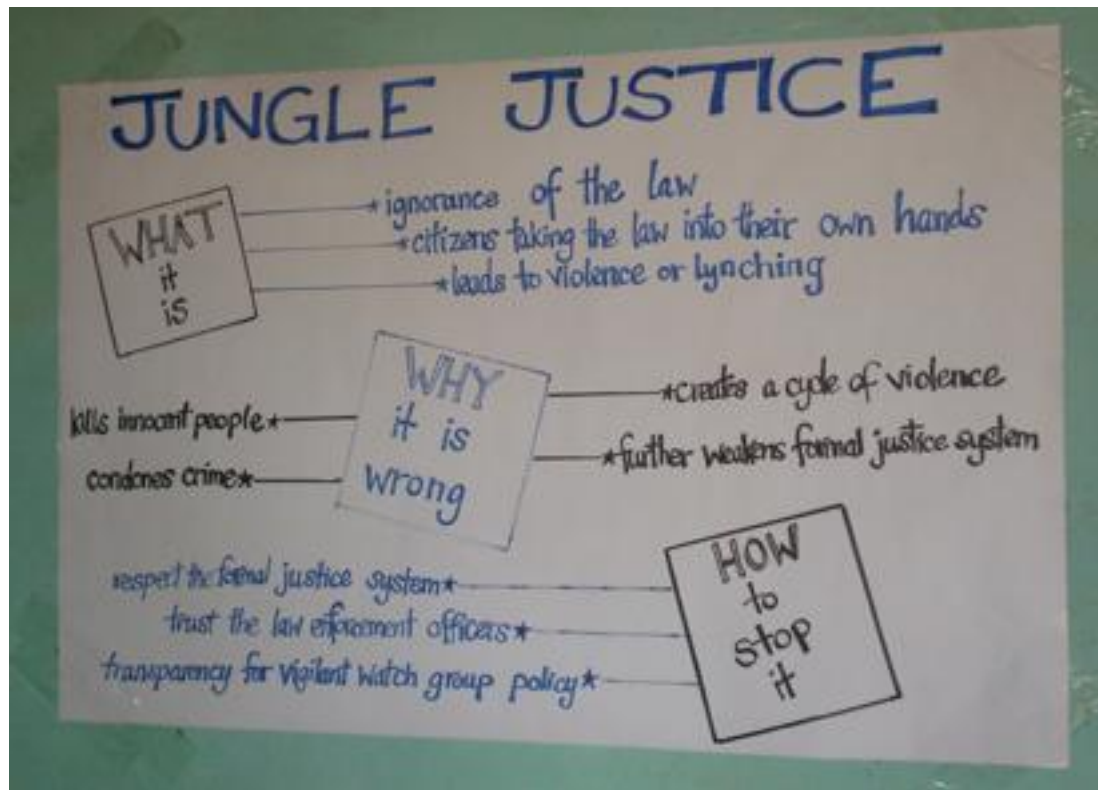 JUNGLE JUSTICE
WHAT
it
is
*ignorance of the law
*citizens taking the law into their own hands
*leads to violence or lynching
WHY
it is
wrong
kills innocent people*
condones crime*
*creates a cycle of violence
*further weakens formal justice system
HOW
to
stop
it
respect the formal justice system*
trust the law enforcement officers*
transparency for vigilant watch group policy*